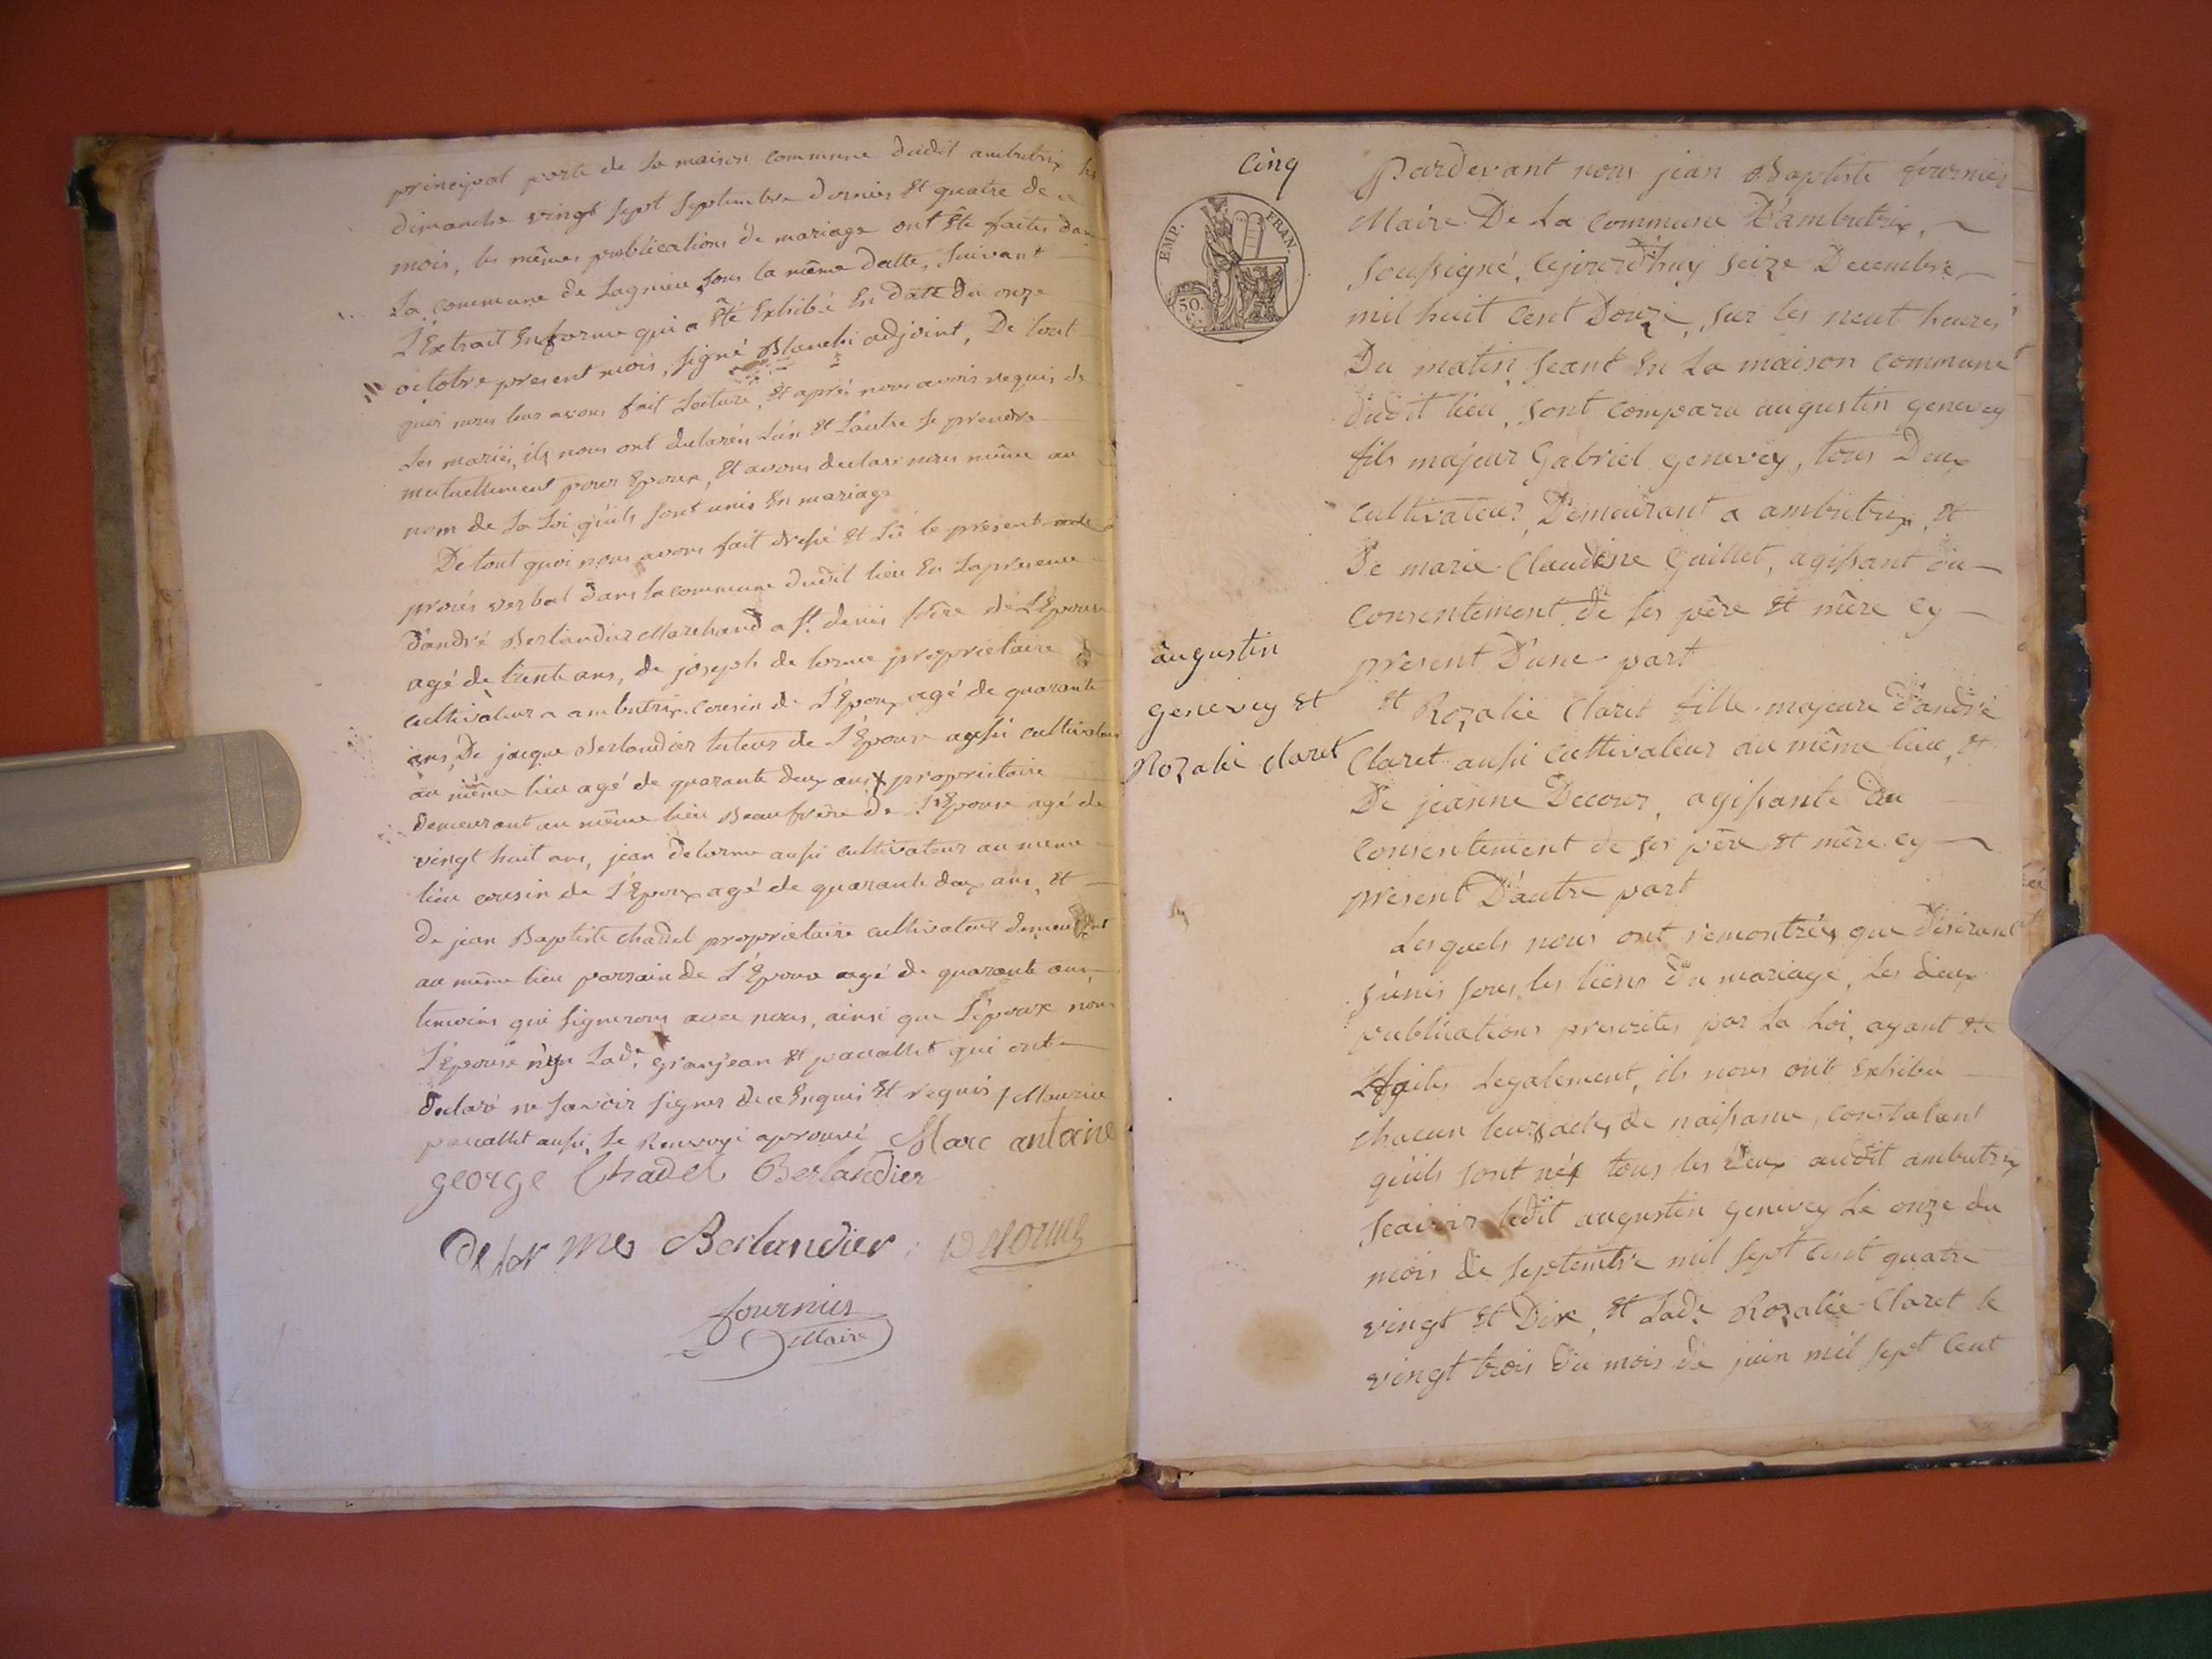 principal porte de la maison commune dudit ambutrix les
dimanche vingt sept septembre dernier et quatre de ce
mois, les mêmes publications de mariage ont été faites dans
La commune de Lagnieu sous la même datte, suivant
L'Extrait En forme qui a été Exhibé En date du onze
octobre present mois, signé Blanchi adjoint, De tout
quoi nous leur avons fait Lecture, et après nous avoir requis de
Les mariés, ils nous ont declarés L'un et L'autre se prendre
mutuellement pour Epoux, et avons declaré nous même au
nom de La Loi qu'ils sont unis En mariage
De tout quoi nous avons fait dressé et Lû le présent acte
procés verbal dans la commune dudit lieu En La presence
d'andré Berlandier Marchand a St. denis frère de L'Epouse
agé de trente ans, de joseph de lorme propriétaire
cultivateur a ambutrix cousin de L'Epoux agé de quarante
ans, De jacque Berlandier tuteur de L'Epouse aussi cultivateur
au même lieu agé de quarante deux ans propriétaire
demeurant au même lieu Beaufrère de L'Epouse agé de
vingt huit ans, jean delorme aussi cultivateur au meme
lieu cousin de L'Epoux agé de quarante deux ans, et
de jean Baptiste chadel propriétaire cultivateur demeurant
au même lieu parrain de L'Epouse agé de quarante ans,
temoins qui signerons avec nous, ainsi que L'époux non
L'Epouse n'y Lade. granjean et pacallet qui ont
declaré ne savoir signer de ce Enquis et requis / Maurice
pacallet aussi, le Renvoyé aprouvé Marc antoine
george Chadel Berlandier
delorme Berlandier Delorme
fournier
Maire
Cinq
EMP. FRAN.
50
C.
augustin
genevey et
Rozalie claret
Pardevant nous jean Baptiste fournier
Maire De La commune D'ambutrix,
soussigné, cejourd'huy seize Decembre
mil huit cent Douze, sur les neuf heures
Du matin, seant En La maison commune
dudit lieu, sont comparu augustin genevey
fils majeur Gabriel genevey, tous Deux
cultivateur, Demeurant a ambutrix, et
De marie Claudine Guillet, agissant du
consentement de ses père et mère cy
present D'une part
et Rozalie Claret fille majeure d'andré
Claret aussi cultivateur au même lieu, et
De jeanne Decour, agissante du
consentement de ses père et mère cy
present D'autre part
Lesquels nous ont remontrés que désirant
s'unir sous les liens du mariage, Les deux
publications prescrites par La Loi, ayant été
faites Legalement, ils nous ont Exhibée
chacun leurs actes de naissance, constatant
qu'ils sont nés tous les deux audit ambutrix
scavoir ledit augustin genevey Le onze du
mois de septembre mil sept cent quatre
vingt et Dix, et Lade. Rozalie Claret le
vingt trois du mois de juin mil sept cent